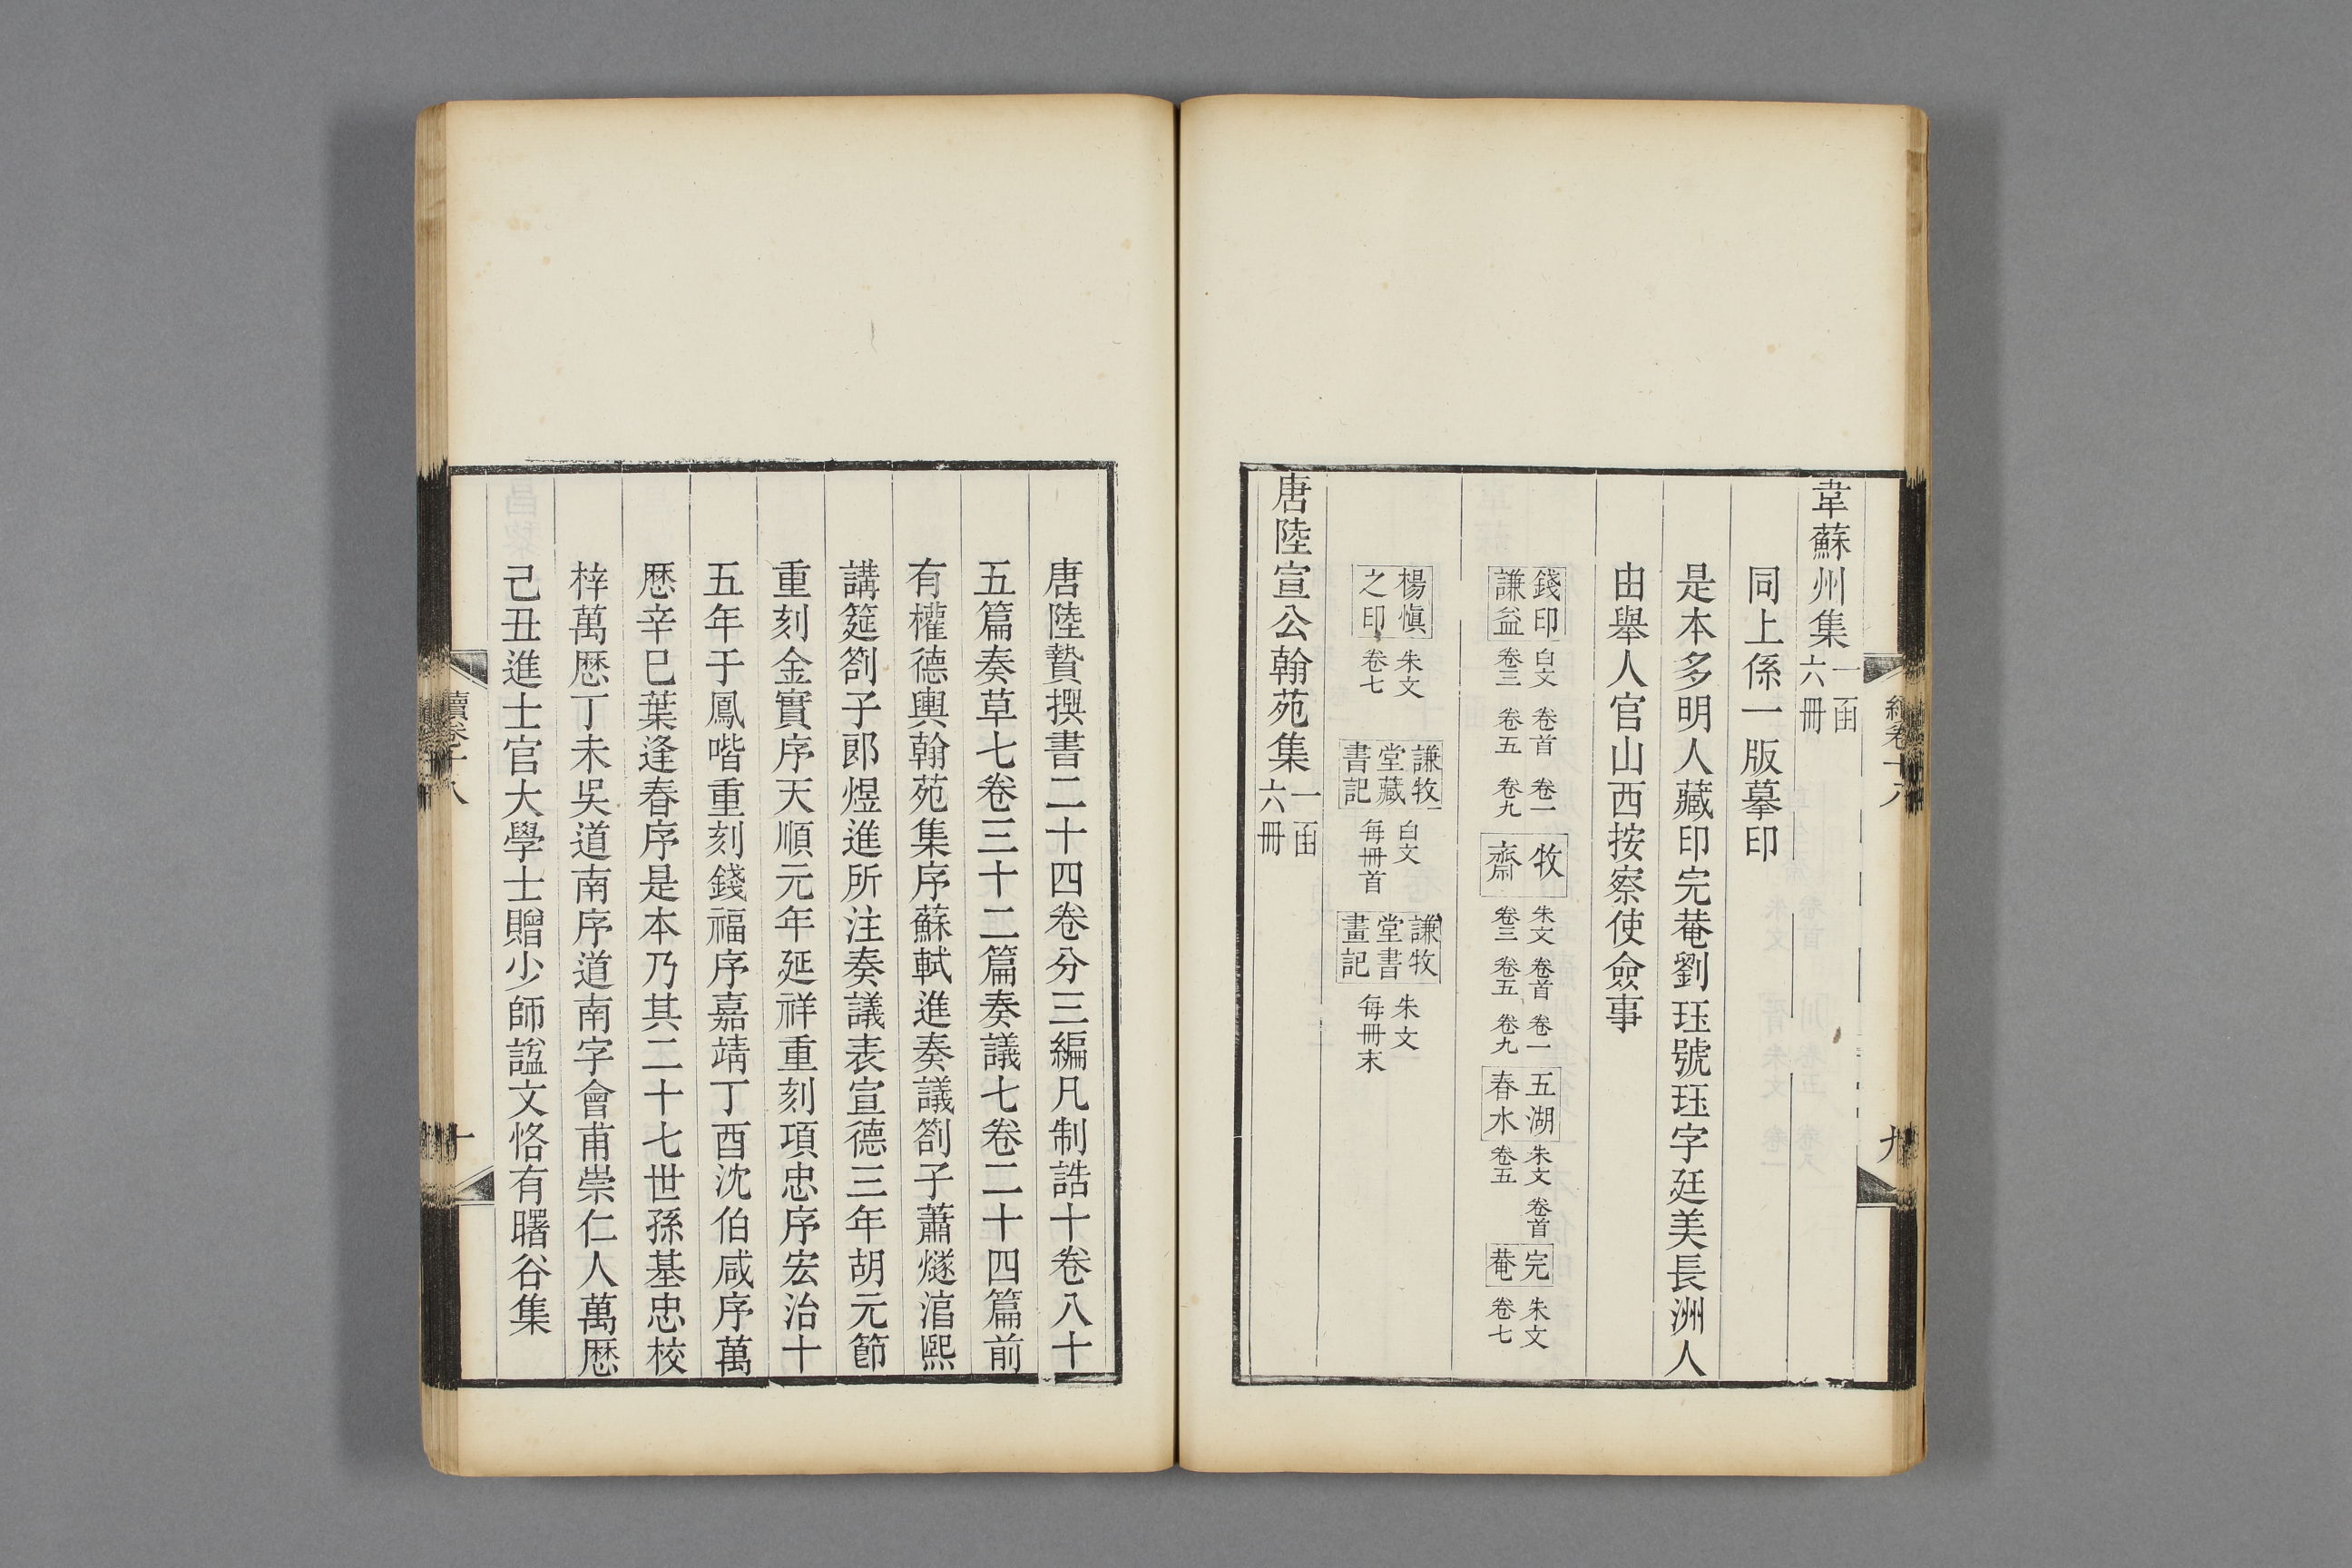 韋蘇州集一函六冊
同上係一版摹印
是本多明人藏印完菴劉珏號珏字廷美長洲人
由舉人官山西按察使僉事
錢印謙益白文卷首卷一卷三卷五卷九牧齋朱文卷首卷一卷三卷五卷九五湖春水朱文卷首卷五完菴朱文卷七
楊慎之印朱文卷七謙牧堂藏書記白文每冊首謙牧堂書畫記朱文每冊末
唐陸宣公翰苑集一函六冊
唐陸贄撰書二十四卷分三編凡制誥十卷八十
五篇奏草七卷三十二篇奏議七卷二十四篇前
有權德輿翰苑集序蘇軾進奏議劄子蕭燧淯熙
講筵劄子郎煜進所注奏議表宣德三年胡元節
重刻金實序天順元年延祥重刻項忠序宏治十
五年于鳳喈重刻錢福序嘉靖丁酉沈伯咸序萬
歷辛巳葉逢春序是本乃其二十七世孫基忠校
梓萬歷丁未吳道南序道南字會甫崇仁人萬歷
己丑進士官大學士贈少師諡文恪有曙谷集
續卷十八
十